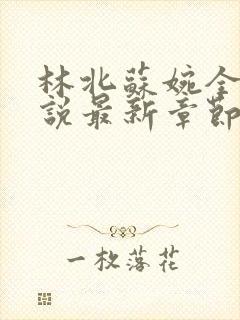 林北蘇婉全
說最新章節
一枚落花